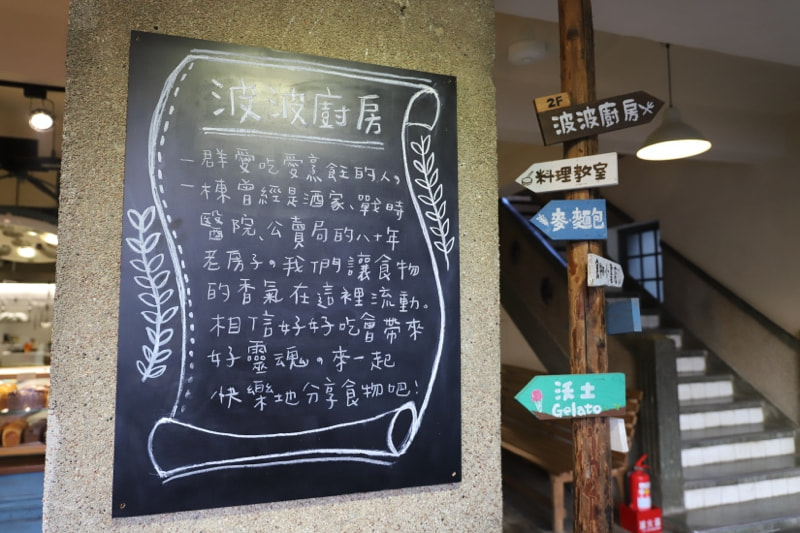 波波廚房
一群愛吃愛烹飪的人,
一棟曾經是酒家、戰時
醫院、公賣局的八十年
老房子。我們讓食物
的香氣在這裡流動。
相信好好吃會帶來
好靈魂。來一起
快樂地分享食物吧!
2F
波波廚房
料理教室
麥麵包
沃土
Gelato